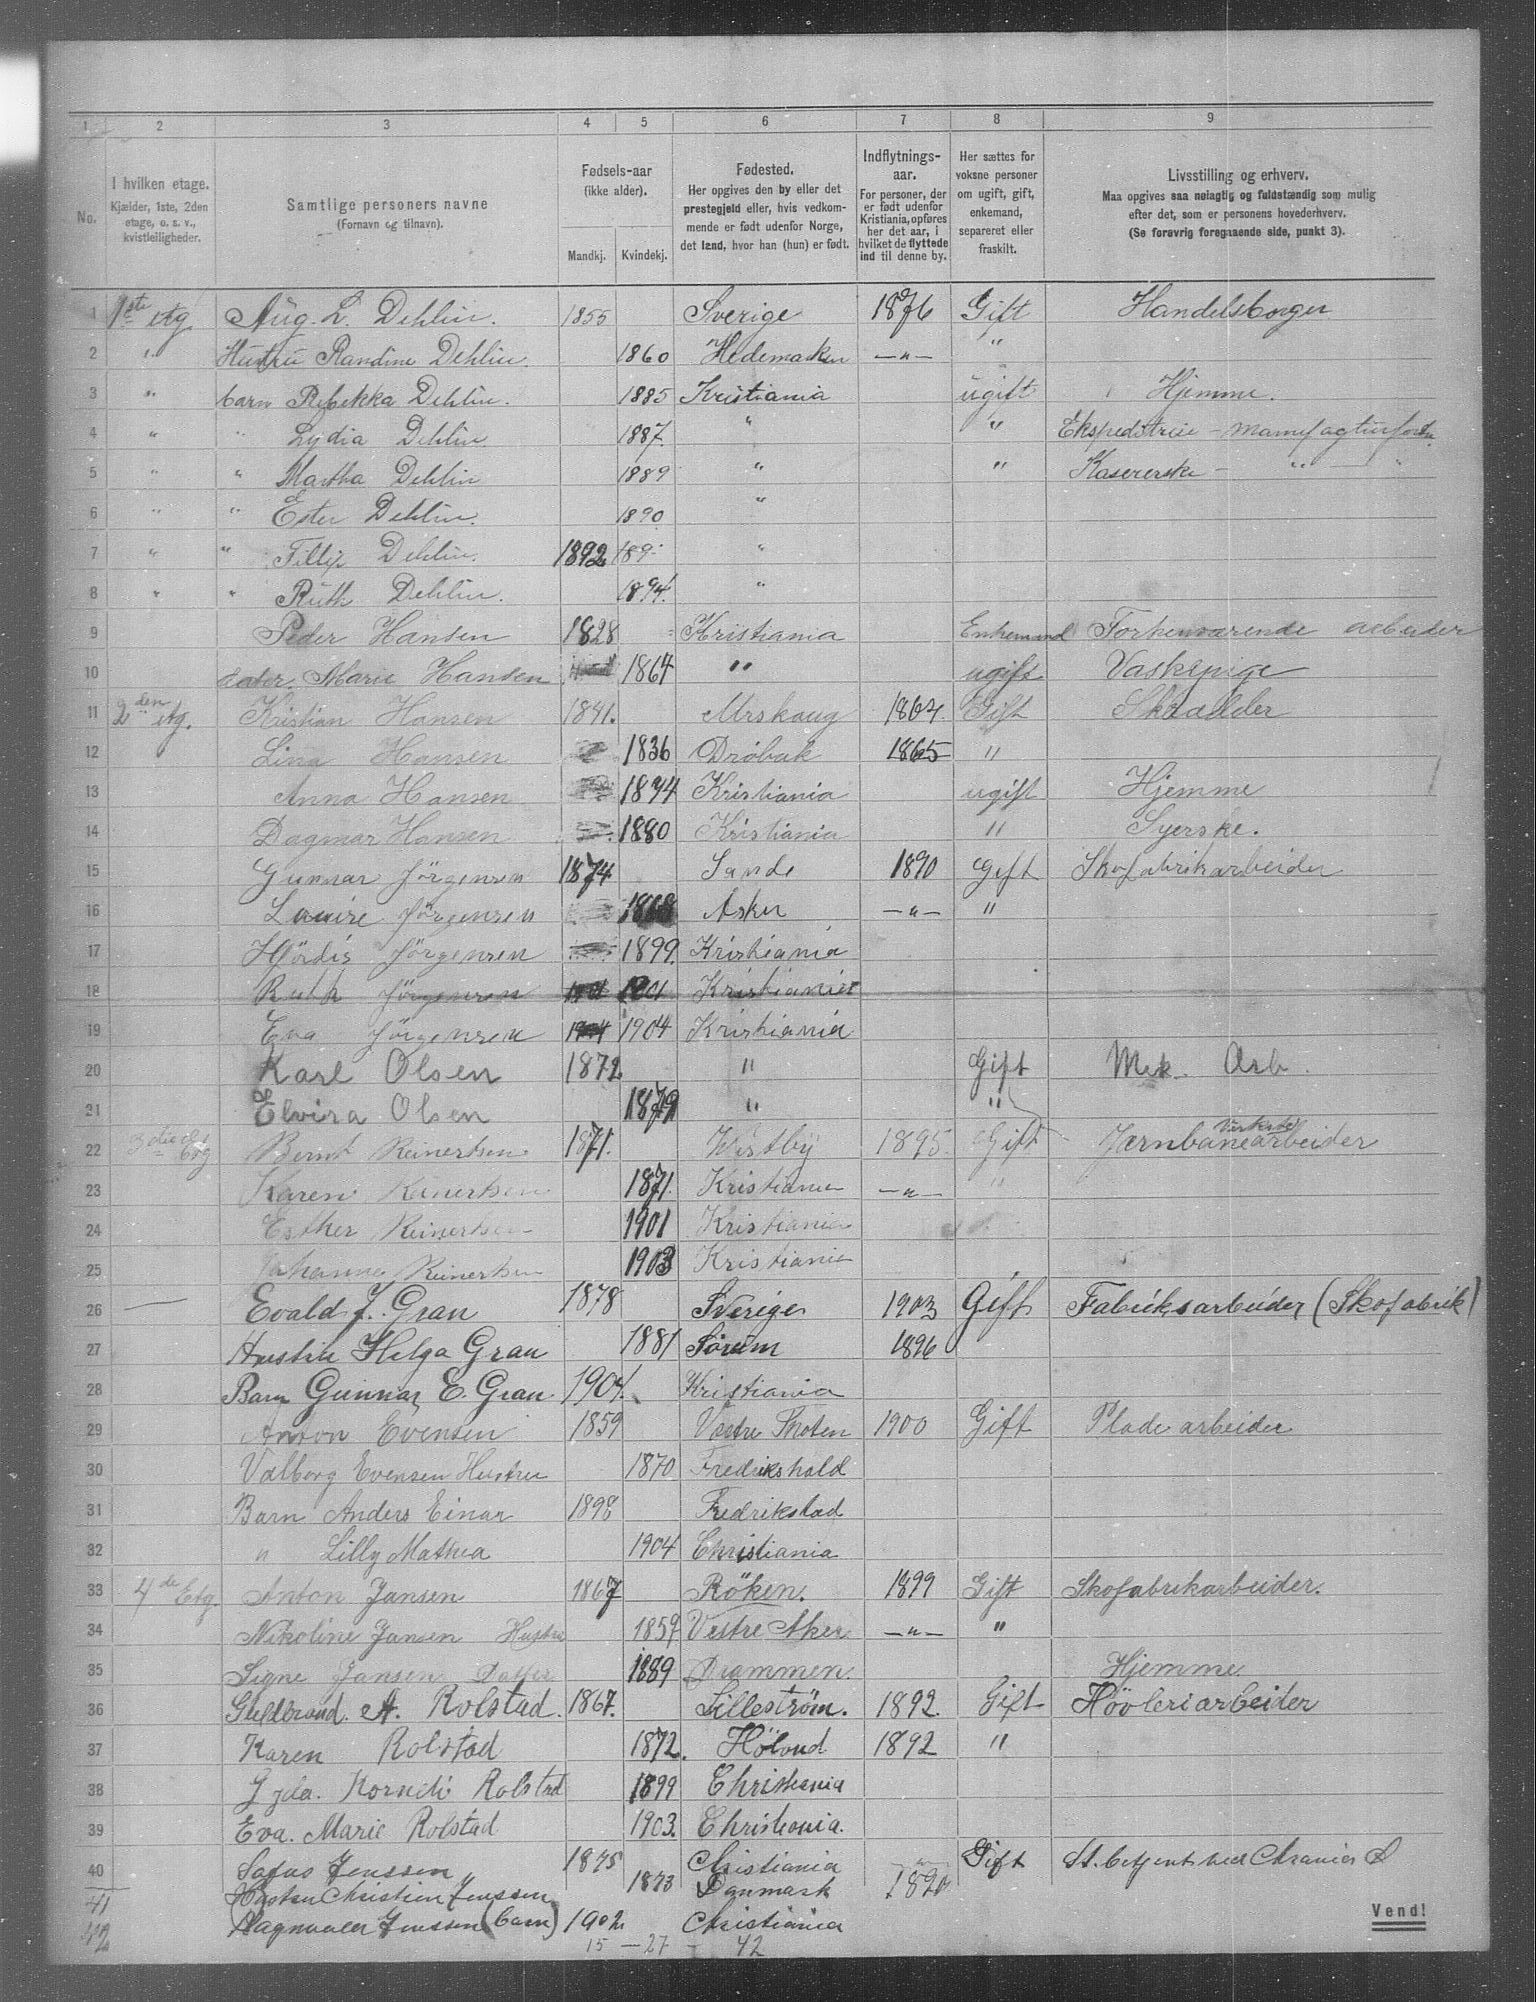 1 2 3 4 5 6 7 8 9
No. I hvilken etage. Kjælder, 1ste, 2den etage, o. s. v., kvistleiligheder. Samtlige personers navne (Fornavn og tilnavn). Fødsels-aar (ikke alder). Mandkj. Kvindekj. Fødested. Her opgives den by eller det prestegjeld eller, hvis vedkommende er født udenfor Norge, det land, hvor han (hun) er født. Indflytnings-aar. For personer, der er født udenfor Kristiania, opføres her det aar, i hvilket de flyttede ind til denne by. Her sættes for voksne personer om ugift, gift, enkemand, separeret eller fraskilt. Livsstilling og erhverv. Maa opgives saa nøiagtig og fuldstændig som mulig efter det, som er personens hovederhverv. (Se forøvrig foregaaende side, punkt 3).
1 1ste etg. Aug. L. Dehlin. 1855 Sverige 1876 Gift Handelsborger
2 " Hustru Randine Dehlin. 1860 Hedemarken —"— "
3 " barn Rebekka Dehlin. 1885 Kristiania ugift Hjemme.
4 " " Lydia Dehlin 1887. " " Ekspeditrise -
5 " " Martha Dehlin 1889 " " Kasererske - " "
6 " " Ester Dehlin. 1890 "
7 " " Fillip Dehlin. 1892 189 "
8 " " Ruth Dehlin. 1894. "
9 Peder Hansen 1828 Kristiania Enkemand Forhenværende arbeider
10 dater. Marie Hansen 1864 " ugift Vaskepige
11 2den etg. Kristian Hansen 1841. 1864. Gift
12 Lina Hansen 1836 Drøbak 1865 "
13 Anna Hansen 1874 Kristiania ugift Hjemme
14 Dagmar Hansen 1880 Kristiania " Syerske.
15 Gunnar Jörgensen 1874 Sande 1890 Gift Skofabrikarbeider
16 Lovise Jörgensen 1868 Asker —"— "
17 Hjördis Jörgensen 1899. Kristiania
18 Ruth Jörgensen 1901 Kristiania
19 Eva Jörgensen 1904 1904 Kristiania
20 Karl Olsen 1872 " Gift Mek. Arb.
21 Elvira Olsen 1879 " "
22 3die Etg Bernt Reinertsen 1871. Vestby 1895. Gift Jernbaneverkstedarbeider
23 Karen Reinertsen 1871. Kristiania —"— "
24 Esther Reinertsen 1901 Kristiania
25 Johanne Reinertsen 1903 Kristiania
26 — Evald J. Gran 1878 Sverige 1903 Gift Fabriksarbeider (Skofabrik)
27 Hustru Helga Gran 1881 Sørum 1896
28 Barn Gunnar E. Gran 1904. Kristiania
29 Anton Evensen 1859 Vestre Thoten 1900 Gift Pladearbeider
30 Valborg Evensen Hustru 1870 Fredrikshald
31 Barn Anders Einar 1898 Fredrikstad
32 " Lilly Mathea 1904 Christiania
33 4de Etg Anton Jansen 1867 Röken. 1899 Gift Skofabrikarbeider.
34 Nikoline Jansen Hustru 1859 Vestre Aker —"— "
35 Signe Jansen Datter 1889 Drammen. Hjemme
36 Guldbrand. A. Rolstad. 1867. Lilleström. 1892. Gift Hövleriarbeider
37 Karen Rolstad 1872. Höland 1892 "
38 Gyda. Rolstad 1899 Christiania
39 Eva. Marie Rolstad 1903. Christiania.
40 Jenssen 1875 Christiania Gift
41 Hustru Christien Jenssen 1873 Danmark 1890
42 Magnvaler Jenssen (barn) 1902 Christiania
15 — 27 — 42
Vend!